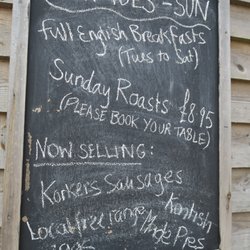 TUES - SUN
full English Breakfasts
(Tues to Sat)
Sunday Roasts £8.95
(PLEASE BOOK YOUR TABLE)
NOW SELLING:
Korkers Sausages
Kentish
Local free range
Pies